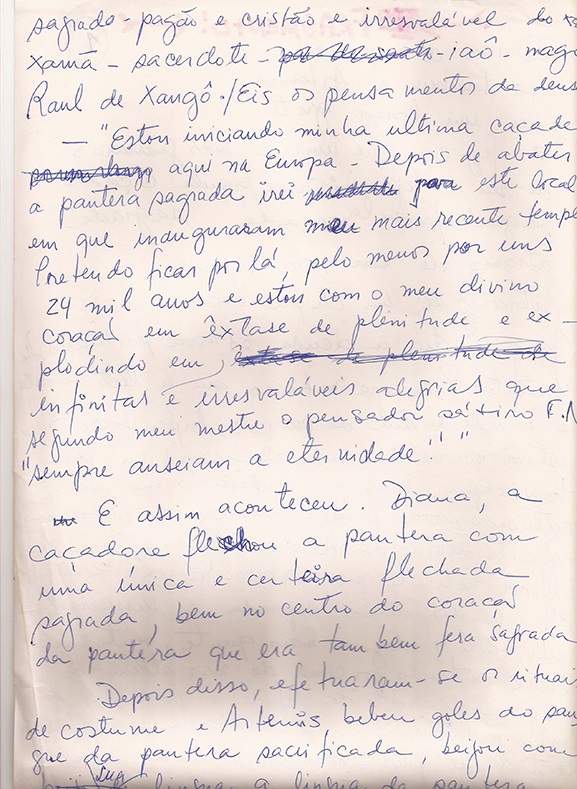 sagrado - pagão e cristão e irresvalável do
xamã - sacerdote - iaô - mago
Raul de Xangô. / Eis os pensamentos da deus
— "Estou iniciando minha ultima caçada
aqui na Europa - Depois de abater
a pantera sagrada irei para este local
em que inauguraram meu mais recente templ
Pretendo ficar por lá, pelo menos por uns
24 mil anos e estou com o meu divino
coração em êxtase de plenitude e ex-
plodindo em,
infinitas e irresvaláveis alegrias que
segundo meu mestre o pensador sátiro F.N
"sempre anseiam a eternidade"! "
E assim aconteceu. Diana, a
caçadora flechou a pantera com
uma única e certeira flechada
sagrada, bem no centro do coração
da pantera que era tambem fera sagrada
Depois disso, efetuaram-se os rituai
de costume e Artemis bebeu goles do san
gue da pantera sacrificada, beijou com
sua língua a língua da pantera